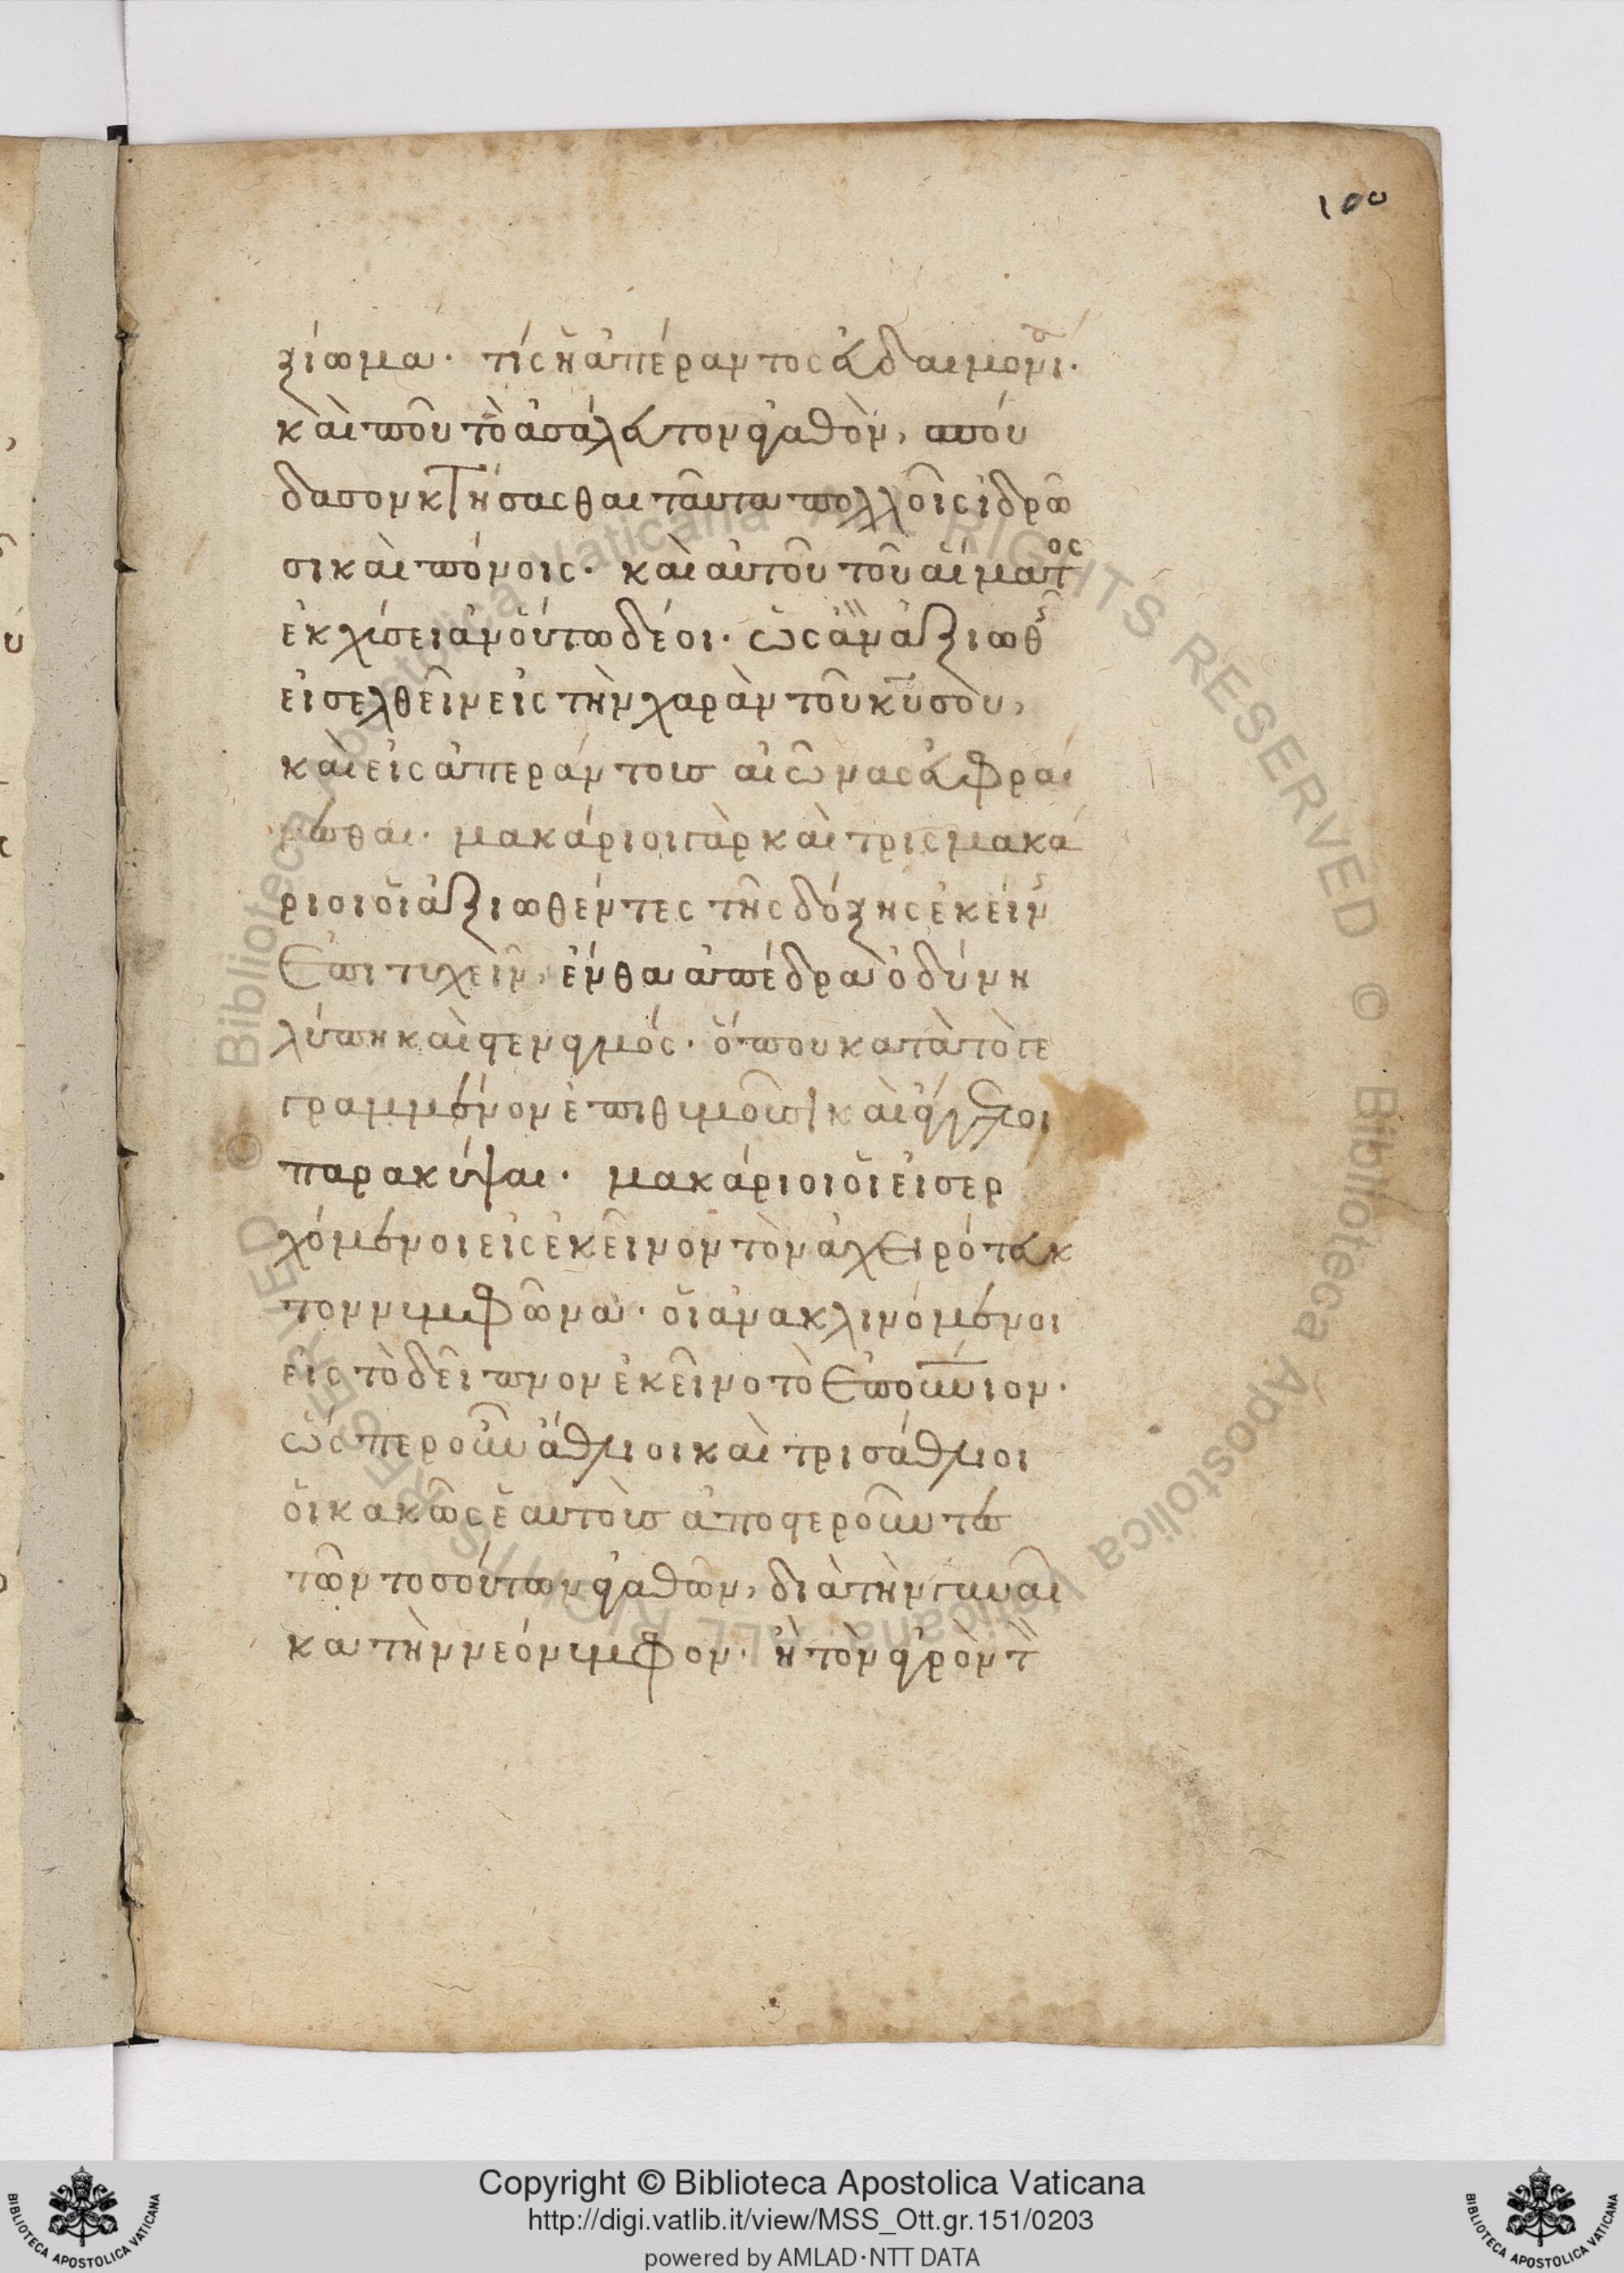 100
ξίωμα. τίς ἡ ἀπέραντος εὐδαιμονία.
καὶ ποῦ τὸ ἀσάλευτον ἀγαθὸν, σπού
δασον κτήσασθαι ταῦτα πολλοῖς ἱδρῶ
σι καὶ πόνοις. καὶ αὐτοῦ τοῦ αἵματος
ἐκχύσει ἂν οὕτω δέοι. ὡς ἂν ἀξιωθῇς
εἰσελθεῖν εἰς τὴν χαρὰν τοῦ κυ σοὺ,
καὶ εἰς ἀπεράντους αἰῶνας εὐφραί
νεσθαι. μακάριοι γὰρ καὶ τρισμακά
ριοι οἱ ἀξιωθέντες τῆς δόξης ἐκείνης
ἐπιτυχεῖν, ἔνθα ἀπέδρα ὀδύνη
λύπη καὶ στεναγμός. ὅπου κατὰ τὸ γε
γραμμένον ἐπιθυμοῦσι καὶ ἄγγελοι
παρακύψαι. μακάριοι οἱ εἰσερ
χόμενοι εἰς ἐκεῖνον τὸν ἀχειρότευκ
τον νυμφῶνα. οἱ ἀνακλινόμενοι
εἰς τὸ δεῖπνον ἐκεῖνο τὸ ἐπουνιον.
ὥσπερ οὖν ἄθλιοι καὶ τρισάθλιοι
οἱ κακῶς ἑαυτοὺς ἀποστεροῦντες
τῶν τοσούτων ἀγαθῶν, διὰ τὴν γυναῖ
κα τὴν νεόνυμφον. ἢ τὸν ἀγρὸν τὸν
Copyright © Biblioteca Apostolica Vaticana
http://digi.vatlib.it/view/MSS_Ott.gr.151/0203
powered by AMLAD·NTT DATA
BIBLIOTECA APOSTOLICA VATICANA
BIBLIOTECA APOSTOLICA VATICANA